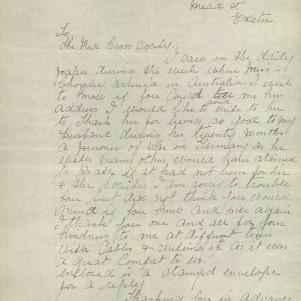 Mead St
Exeter
To
The Red Cross Society
I saw in the daily
paper during the week when Miss
Chomley arrived in Australia & wish
to know if you could tell me her
address I would like to write to her
said
to thank her for being so good to my
husband during his twenty months
a Prisoner of War in Germany as he
with many others would have starved
if it had not been for her
& the I am sorry to trouble
you but did not think you would
mind if you knew and once again
I thank you one and all for your
kindness to me at different times
with Cables & as it was
a great Comfort to us
enclosed is a Stamped envelope
for a reply
Thanking you in advance